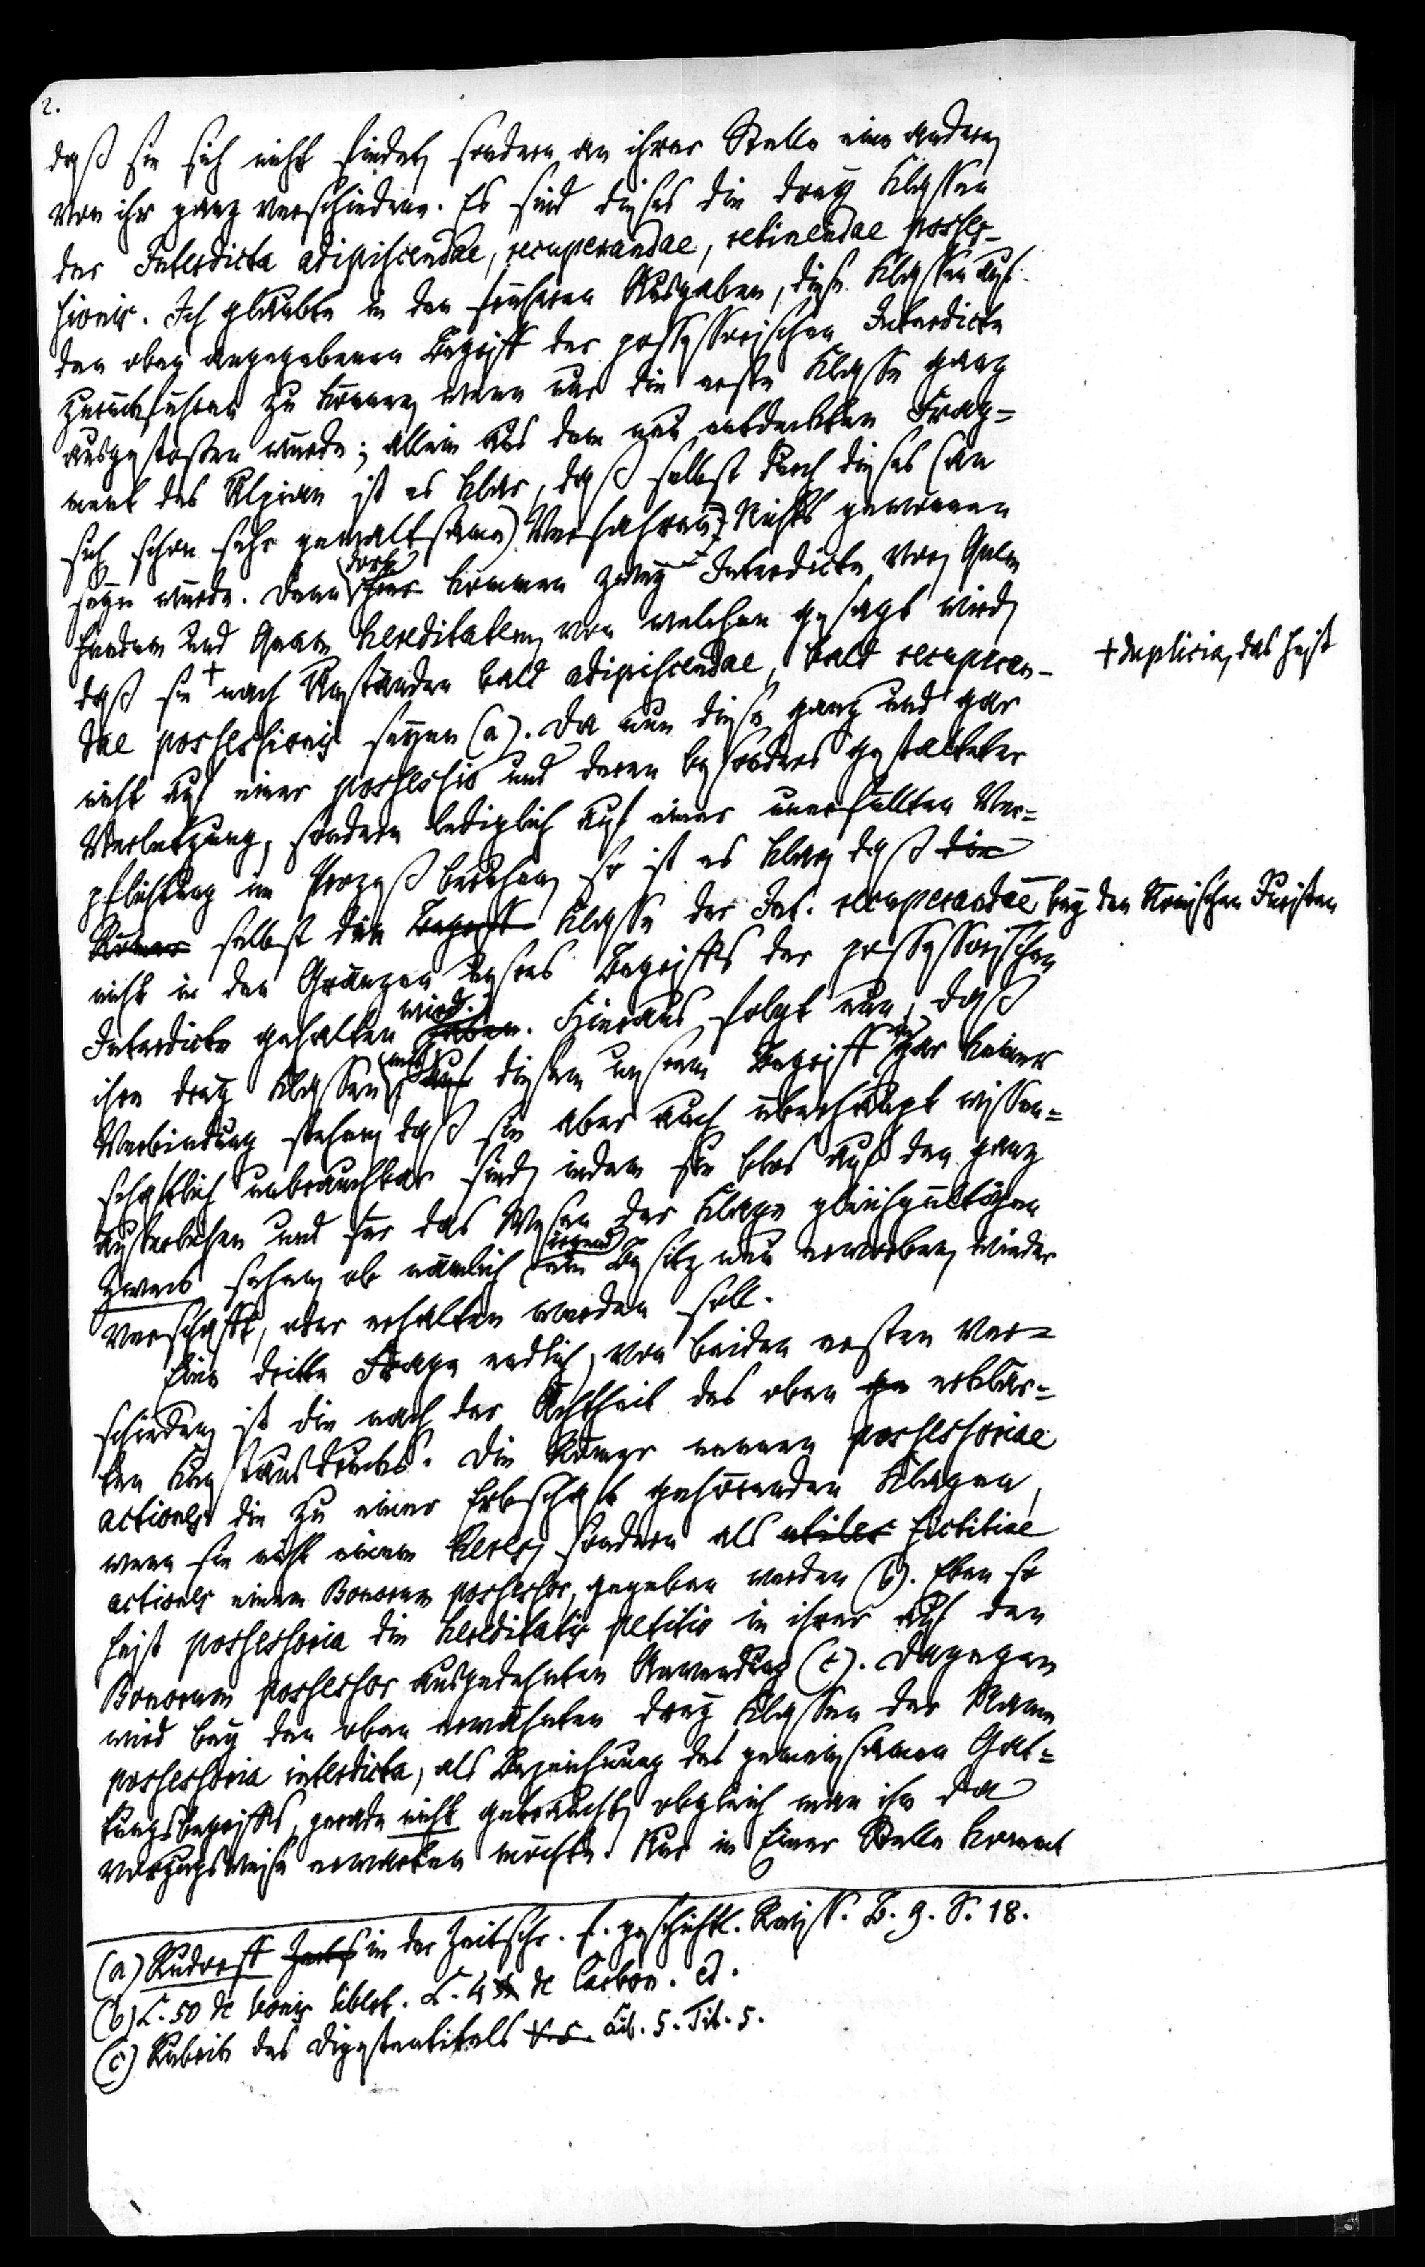 2.
daß sie sich nicht findet, sondern an ihrer Stelle eine andere,
von ihr ganz verschiedene. Es sind dieses die drey Klassen
der Interdicta adipiscendae, recuperandae, retinendae posses-
sionis. Ich glaubte in den früheren Ausgaben, diese Klassen auf
den oben angegebenen Begriff der possessorischen Interdicte
zurückführen zu können, wenn nur die erste Klasse ganz
ausgestoßen würde; allein aus dem neu entdeckten Frag-
ment des Ulpian ist es klar, daß selbst durch dieses (an
sich schon sehr gewaltsame) Verfahren Nichts gewonnen
seyn würde. Denn dort hier kommen zwey Interdicte vor, Quem
fundum und Quam hereditatem, von welchen gesagt wird,
daß sie + nach Umständen bald adipiscendae, bald recuperan-
+ duplicia, das heißt
dae possessionis seyen (a). Da nun diese ganz und gar
nicht auf einer possessio und deren besonders gestalteter
Verletzung, sondern lediglich auf einer unerfüllten Ver-
pflichtung im Prozeß beruhen, so ist es klar, daß die
Römer selbst die Begriff Klasse der Int. recuperandae bey den Römischen Juristen
nicht in den Gränzen unsres Begriffs der possessorischen
Interdicte gehalten wird. haben. Hieraus folgt nun, daß
ihre drey Klassen mit auf diesem unserem Begriff in gar keiner
Verbindung stehen, daß sie aber auch überhaupt wissen-
schaftlich unbrauchbar sind, indem sie blos auf den ganz
äußerlichen und für das Wesen der Klage gleichgültigen
Zweck sehen, ob nämlich irgend ein Besitz neu erworben, wieder
verschafft, oder erhalten werden soll.
Eine dritte Frage endlich, von beiden ersten ver-
schieden, ist die nach der Ächtheit des oben ge erklär-
ten Kunstausdrucks. Die Römer nennen possessoriae
actiones die zu einer Erbschaft gehörenden Klagen,
wenn sie nicht einem heres, sondern als utiles fictitiae
actiones einem Bonorum possessor, gegeben werden (b). Eben so
heißt possessoria die hereditatis petitio in ihrer auf den
Bonorum possessor ausgedehnten Anwendung (c). Dagegen
wird bey den oben erwähnten drey Klassen der Name
possessoria interdicta, als Bezeichnung des gemeinsamen Gat-
tungsbegriffs, gerade nicht gebraucht, obgleich man ihn da
vorzugsweise erwarten möchte. Nur in Einer Stelle kommt
(a) Rudorff in der Zeitschr. f. geschichtl. Rwiss. B. 9. S. 18.
(b) L. 50 de bonis libert. L. 4 de Carbon. ed.
(c) Rubrik des Digestentitels Lib. 5. Tit. 5.